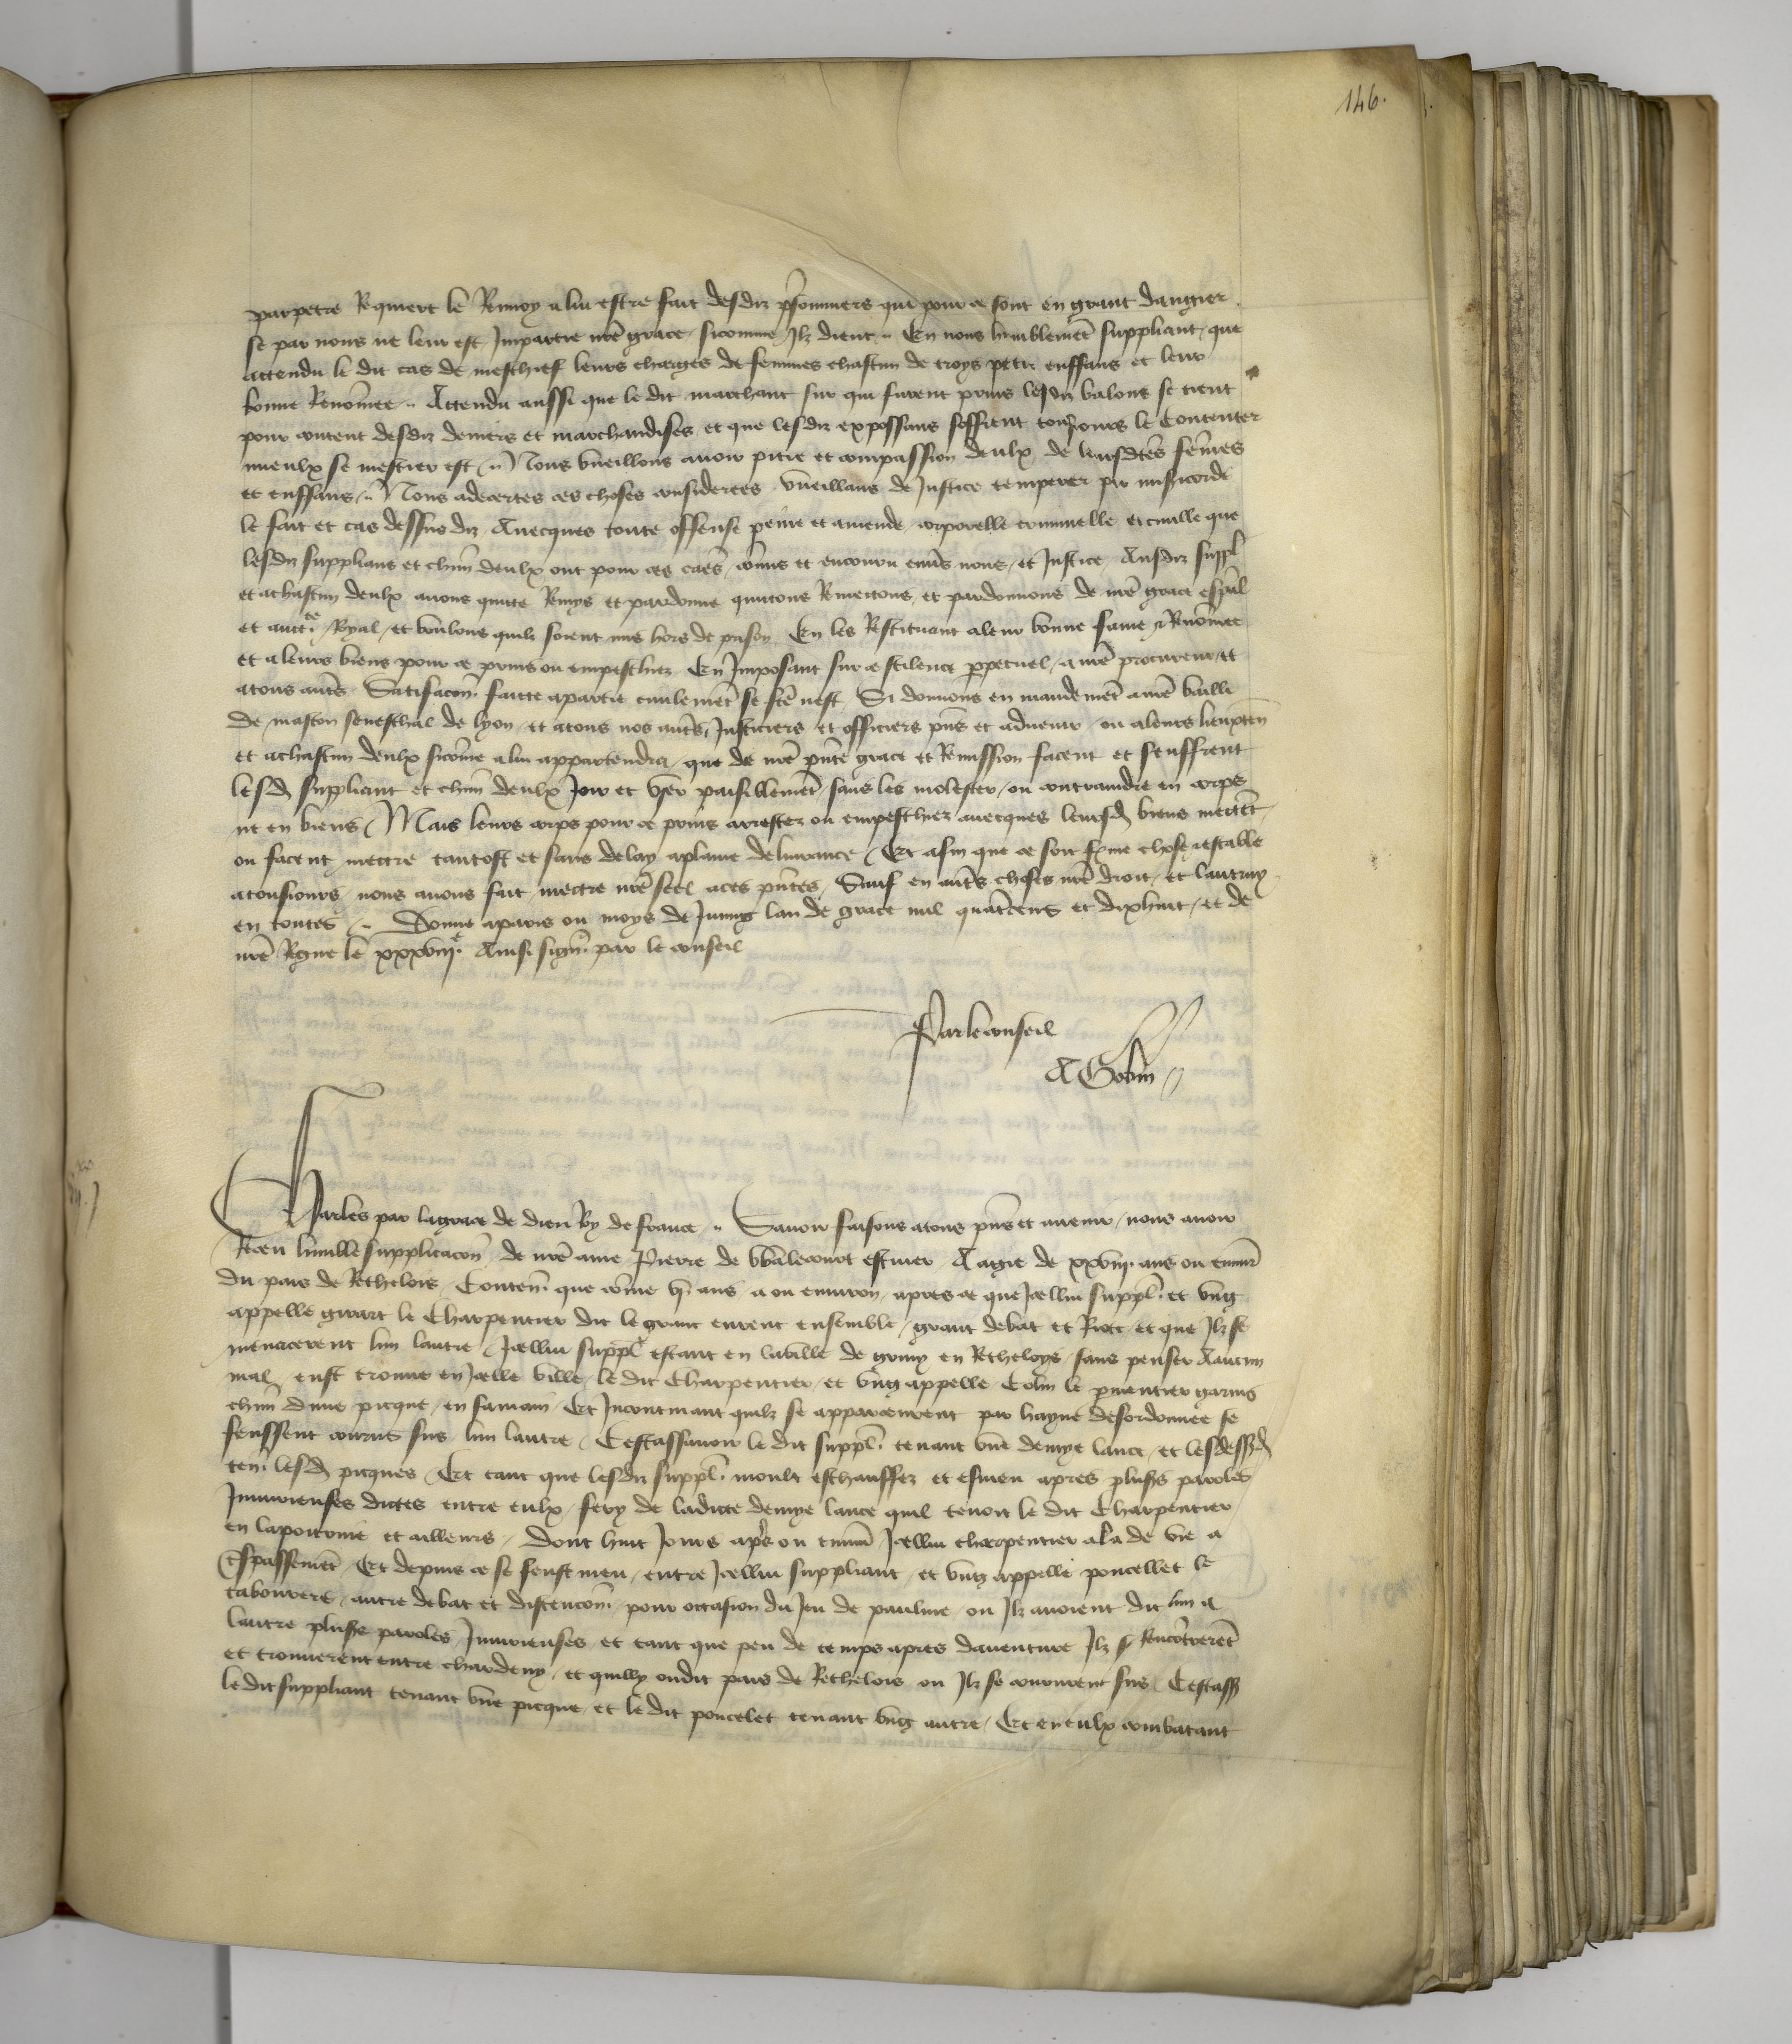 146.
parpetre Requiert le Renvoy a lui estre fait desdiz prisonniers qui pour ce sont en grant dangier
se par nous ne leur est Impartie nrē grace sicomme Ilz dient En nous humblemēt suppliant que
attendu le dit cas de meschief leurs charges de femmes chascun de troys petiz enffans et leur
bonne Renōmee Attendu aussi que le dit marchant sur qui furent prins lesdiz balons se tient
pour content desdiz deniers et marchandises et que lesdiz expossans soffrent tousiours le Contenter
mieulx se mestier est Nous vueillons auoir pitie et compassion deulx de leursdtēs fēmes
et enffans Nous adecertes ces choses considerees vueillans de Justice temperer par misericorde
le fait et cas dessus diz Auecques toute offense peine et amende corporelle criminelle et ciuille que
lesdiz supplians et chūn deulx ont pour ces caēs cōmis et encouru enuēs nous et Justice Ausdiz suppl
et a chascun deulx auons quitte Remys et pardonne quittons Remettons et pardonnons de nrē grace espāl
et auctte Royal et voulons quilz soient mis hors de prison En les Restituant a leur bonne fame Renōmee
et a leurs biens pour ce prins ou empeschiez En Imposant sur ce scilence ppetuel a nrē procureur et
a tous autēs Satisfacōn faitte a partie ciuilemēt se fcē nest Si donnons en mandemēt a nrē bailli
de mascon seneschal de lyon et a tous nos autēs Justiciers et officiers pn̄s et aduenir ou a leurs lieuxten
et a chascun deulx sicōme a lui appartendra que de nrē pn̄te grace et Remission facent et seuffrent
lesd suppliant et chūn deulx Joir et vser paisiblemēt sans les molester ou contraindre en corps
ne en biens Mais leurs corps pour ce prins arrestez ou empeschiez auecques leursd biens mettēt
ou facent mettre tantost et sans delay a plaine deliurance Et afin que ce soit ferme chose et estable
a tousiours nous auons fait mettre nrē seel a ces pn̄tes Sauf en autēs choses nrē droit et lautruy
en toutes Donne a paris ou moys de Juing lan de grace mil quatrecens et dixhuit et de
nrē Regne le xxxviije Ainsi signe par le conseil
Par le conseil
A Gobin
Charles par la grace de dieu Roy de france Sauoir faisons a tous pn̄s et auenir nous auoir
Receu lumble supplicacōn de nrē ame Pierre de Wallecourt escuier Aagie de xxviij ans ou enuir
du pais de Rethelois Conten que cōme vj ans a ou enuiron apres ce que Icellui suppl et vng
appelle girart le Charpentier dit le grant eurent ensemble grant debat et Riote et que Ilz se
menacerent lun lautre Icellui suppl estant en la ville de grimy en Retheloys sans penser A aucun
mal eust trouue en Icelle ville le dit Charpentier et vng appelle Colin le parmentier garnis
chūn dune picque en sa main Et Incontinant quilz se apparceurent par hayne desordonnee se
feussent courus sus lun lautre Cestassauoir le dit suppl tenant vne demye lance et les dessusd
ten lesd picques Et tant que lesdiz suppl moult eschauffez et esmeu apres plus̄s paroles
Iniurieuses dictes entre eulx fery de la ditte demye lance quil tenoit le dit Charpentier
en la poitrine et ailleurs Dont huit Jours aps ou enuiron Icellui charpentier ala de vie a
trespassemēt Et depuis ce se feust meu entre Icellui suppliant et vng appelle poncellet le
tabourere autre debat et discencōn pour occasion du Jeu de paulme ou Ilz auoient dit lun a
lautre plus̄s paroles Iniurieuses et tant que peu de temps apres dauenture Ilz se Rencōtrerēt
et trouuerent entre chardeny et quilly oudit pais de Rethelois ou Ilz se coururent sus Cestass
le dit suppliant tenant vne picque et le dit poncelet tenant vng autre Et en eulx combatant